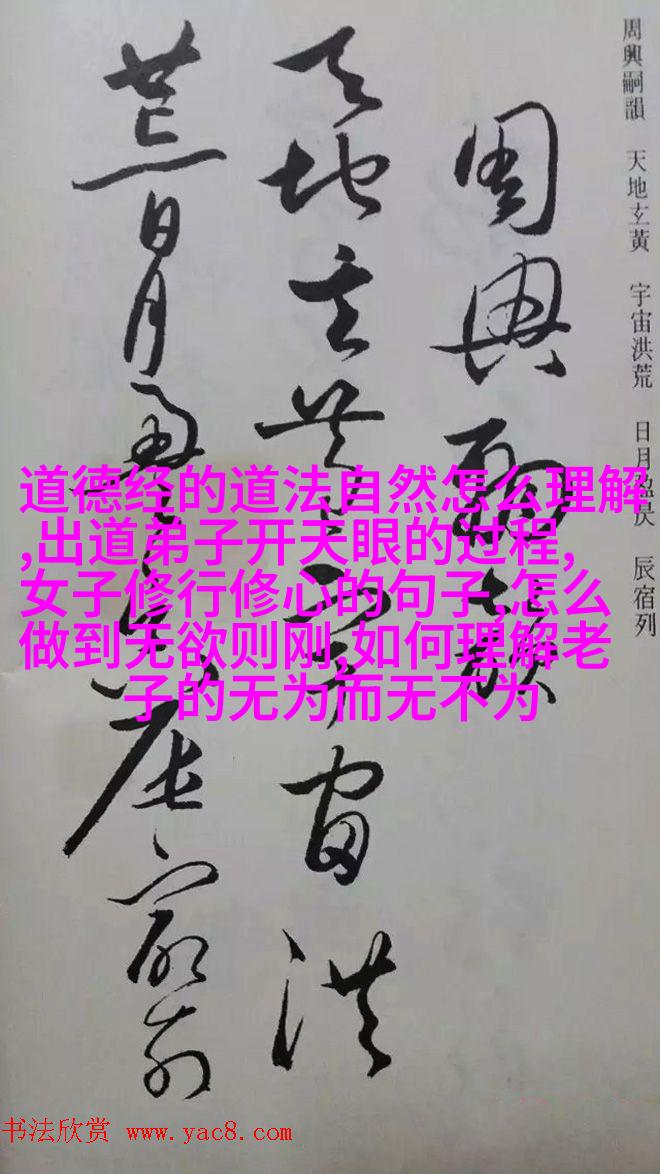 周興嗣韻 天地玄黃 宇宙洪荒 日月盈昃 辰宿列
周興嗣韻
天地玄黃宇宙洪
荒日月盈昃辰宿列
道德经的道法自然怎么理解
,出道弟子开天眼的过程,
女子修行修心的句子,怎么
做到无欲则刚,如何理解老
子的无为而无不为
书法欣赏 www.yac8.com